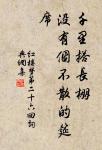 千里搭長棚
沒有個不散的筵
席
紅樓夢第二十六回詞